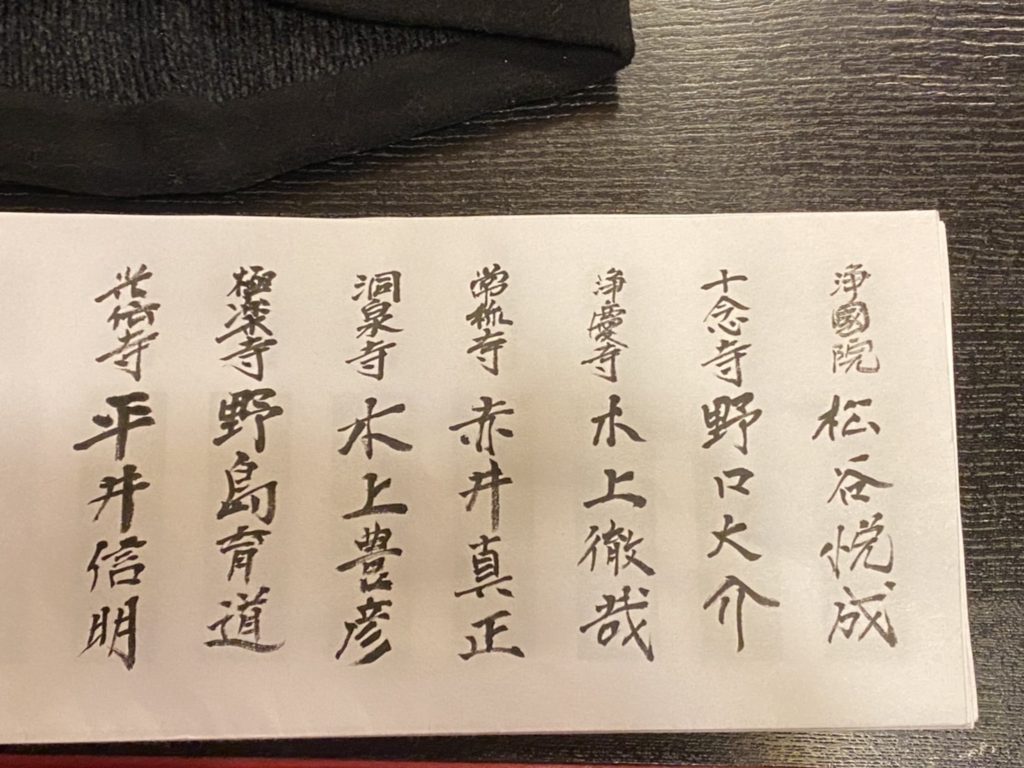 浄國院 松谷悦成
十念寺 野口大介
浄慶寺 木上徹哉
常照寺 赤井真正
洞泉寺 水上豊彦
極楽寺 野島育道
光伝寺 平井信明